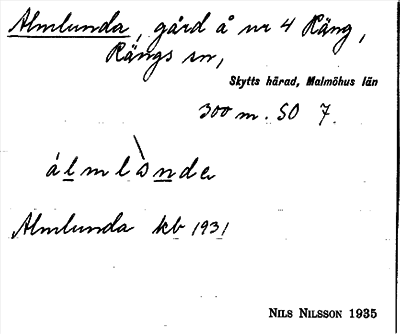 Almlunda, gård å nr 4 Räng,
Rängs sn,
Skytts härad, Malmöhus län
300 m. SO 7.
álmlànda
Almlunda kb 1931
NILS NILSSON 1935